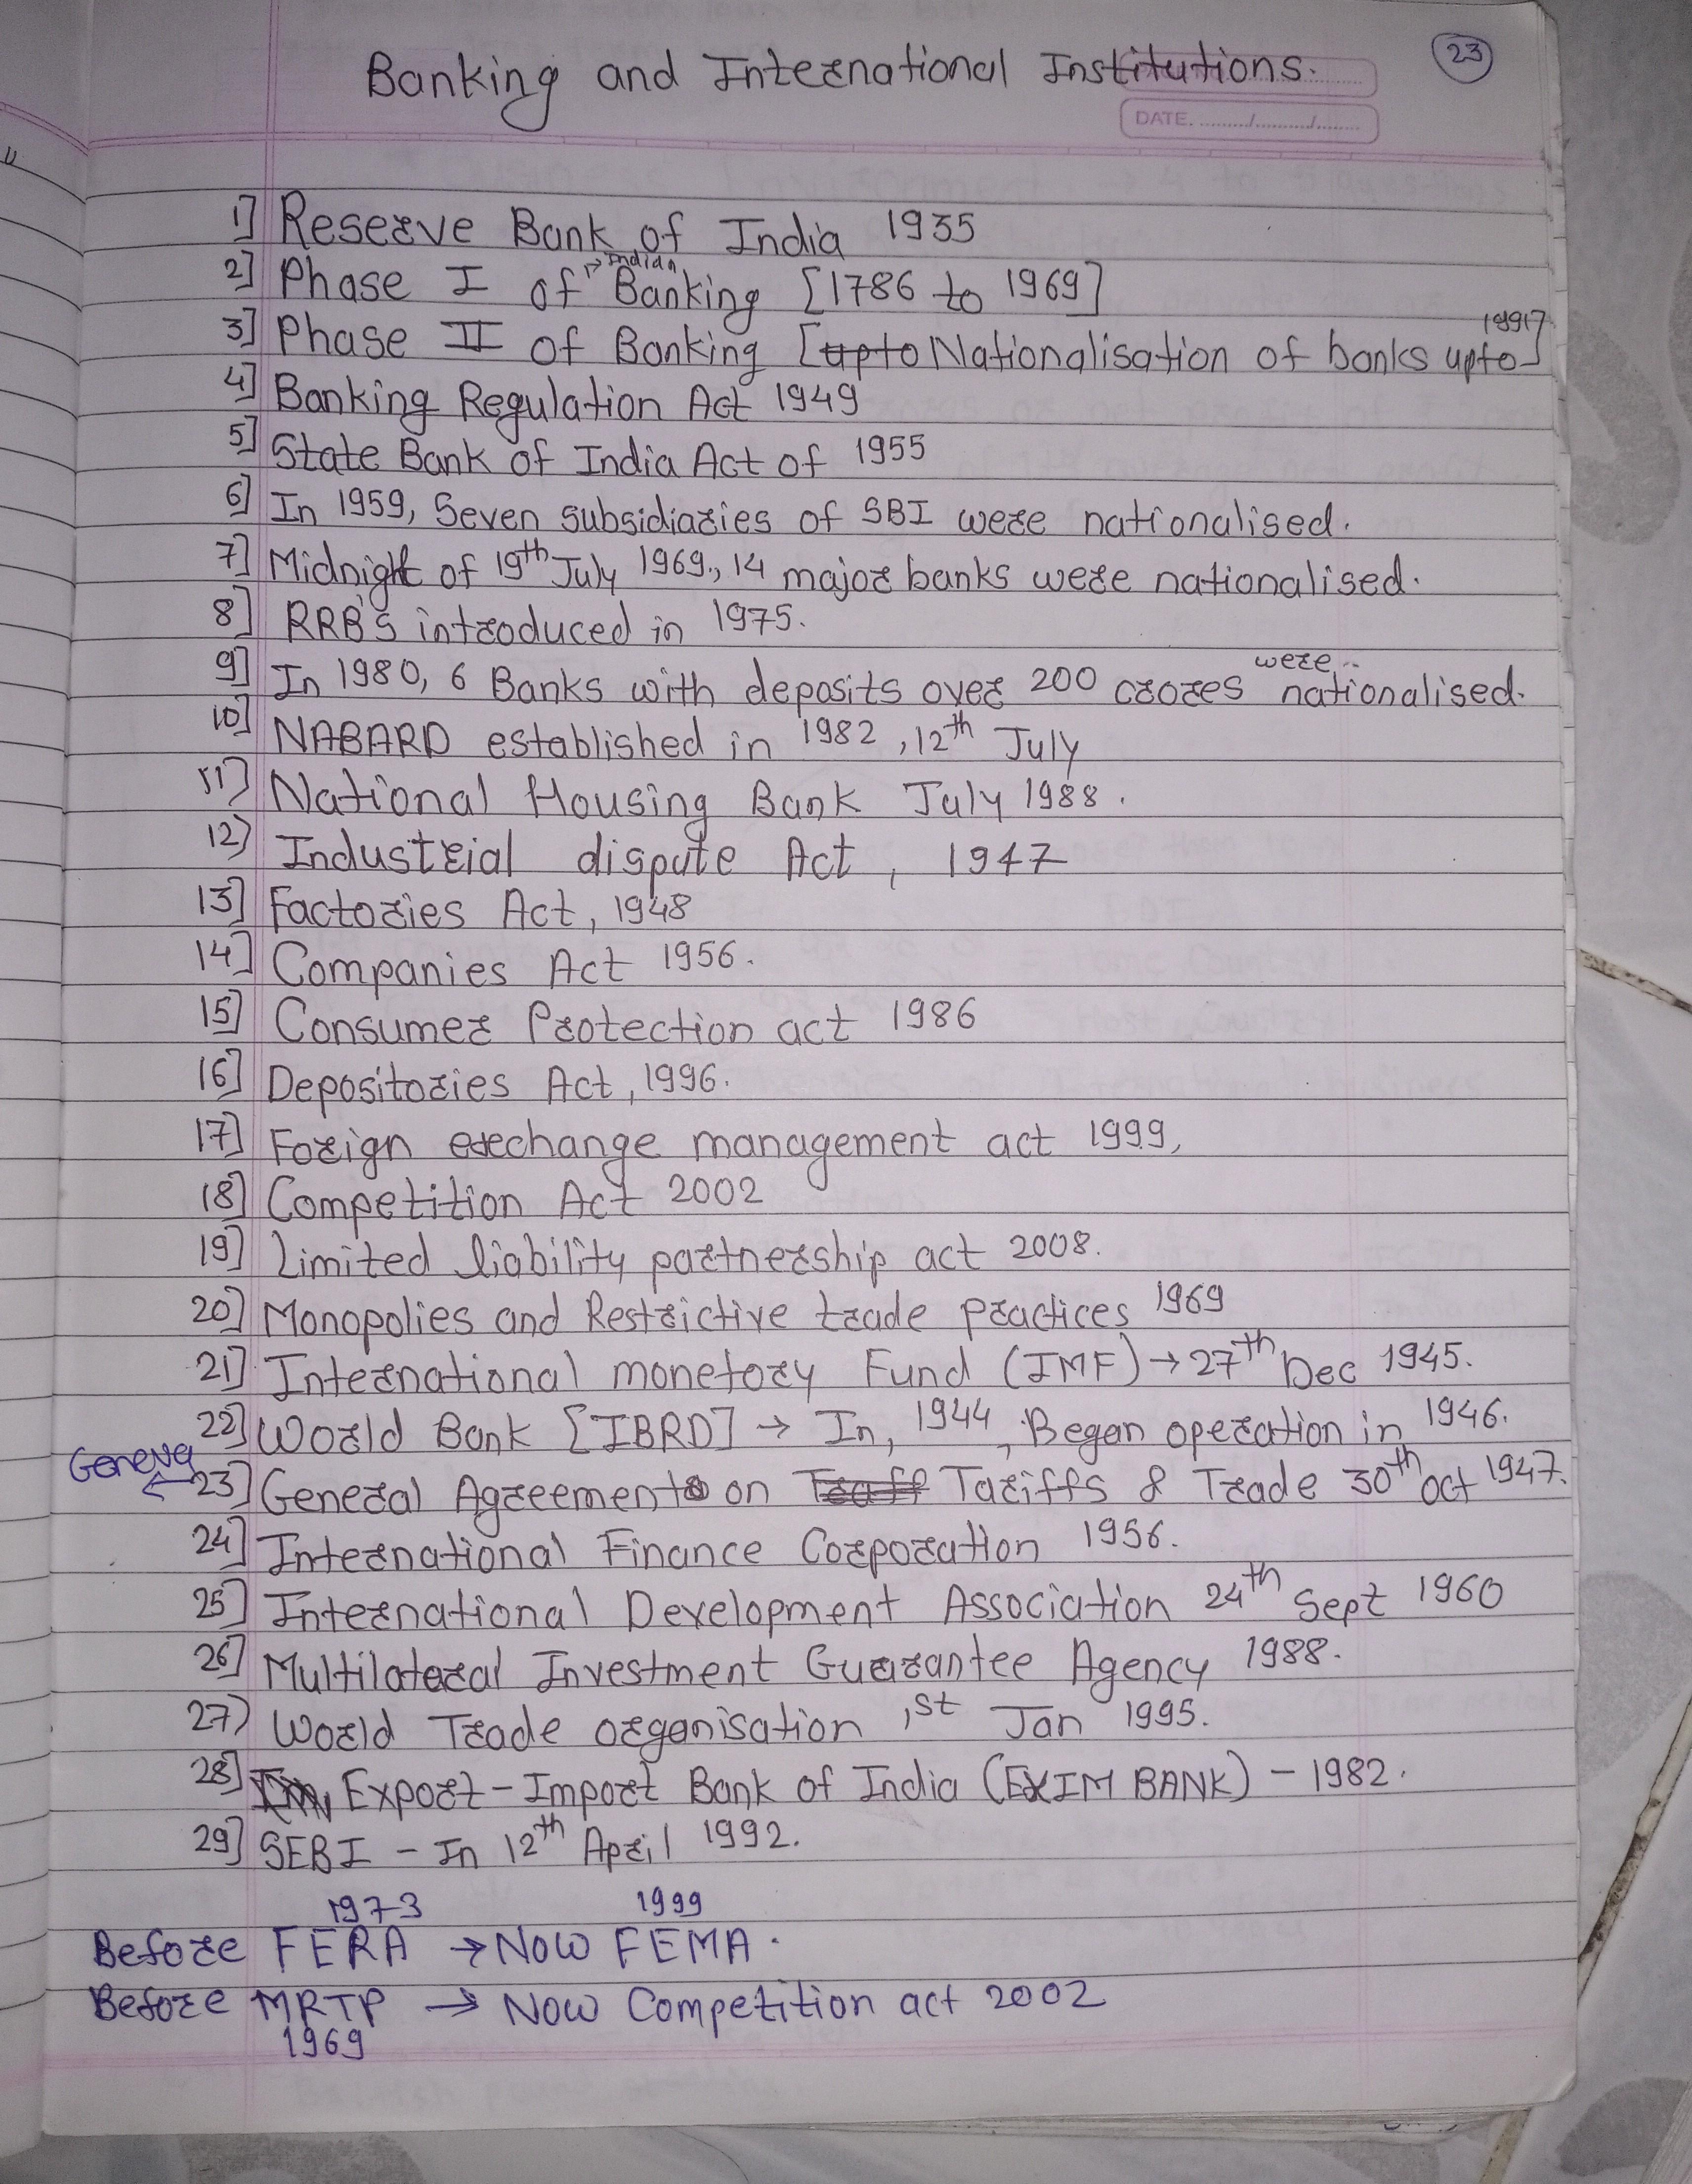 Banking and International Institutions.
23
DATE. ......../........../........
1] Reserve Bank of India 1935
2] Phase I of Indian Banking [1786 to 1969]
3] Phase II of Banking [upto Nationalisation of banks upto 1991]
4] Banking Regulation Act 1949
5] State Bank of India Act of 1955
6] In 1959, Seven subsidiaries of SBI were nationalised.
7] Midnight of 19th July 1969, 14 major banks were nationalised.
8] RRB's introduced in 1975.
9] In 1980, 6 Banks with deposits over 200 crores were nationalised.
10] NABARD established in 1982, 12th July
11) National Housing Bank July 1988.
12) Industrial dispute Act, 1947
13] Factories Act, 1948
14] Companies Act 1956.
15] Consumer Protection act 1986
16] Depositories Act, 1996.
17] Forign exchange management act 1999,
18] Competition Act 2002
19] Limited liability partnership act 2008.
20] Monopolies and Restrictive trade practices 1969
21] International monetory Fund (IMF) → 27th Dec 1945.
22] World Bank [IBRD] → In, 1944, Began operation in 1946.
Geneva ← 23] General Agreement on Tariffs & Trade 30th oct 1947.
24] International Finance Corporation 1956.
25] International Development Association 24th Sept 1960
26] Multilateral Investment Guarantee Agency 1988.
27) World Trade organisation 1st Jan 1995.
28] Export-Import Bank of India (EXIM BANK) - 1982.
29] SEBI - In 12th April 1992.
1973 1999
Before FERA → Now FEMA.
Before MRTP → Now Competition act 2002
1969